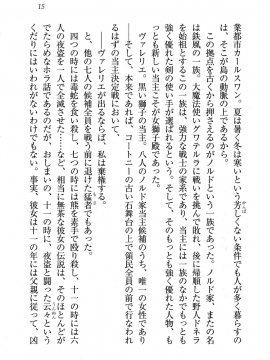 15
業都市カールスワン。夏は暑く冬は寒いという芳しくない条件でも人が集まる、
この拠点を古くから押さえるのがノルドという一族であった。
っと、そこが島の動脈だからだ。
鉄風の一族。大魔法使いアンデルルクに挑んで敗れ、後に帰順した野人ドネル
を始祖とするこの一族は、強力な戦士の家系であり、当主は一族のなかでもっとも
強く優れた剣の使い手が選ばれるという。そして、そのもっとも強く優れた人物、も
っとも新しい当主の名は、
ヴァレリエ。黒い獅子の当主。八人のノルド家当主候補のうち、唯一の女性であり、
そして、本来であれば、コートニーの古い石舞台の上で領民全員の前で行われ
るはずの当主決定戦において、
ヴァレリエが出るならば、私は棄権する。
と、他の七人の候補全員を戦う前に退けた猛者でもあった。
四つの時に毒蛇を食い殺し、七つの時に熊を素手で殴り殺し、十一の時には十六
人の夜盗を一人で全滅させた……などと、相当に無茶な彼女の伝説は、そのほとんど
がわざわざホラ話であるのだが、おしまいの、十一の時に、夜盗と闘った云々という
くだりにはいわれがないわけでもない。事実、彼女は十一の年に父親に従って、凶